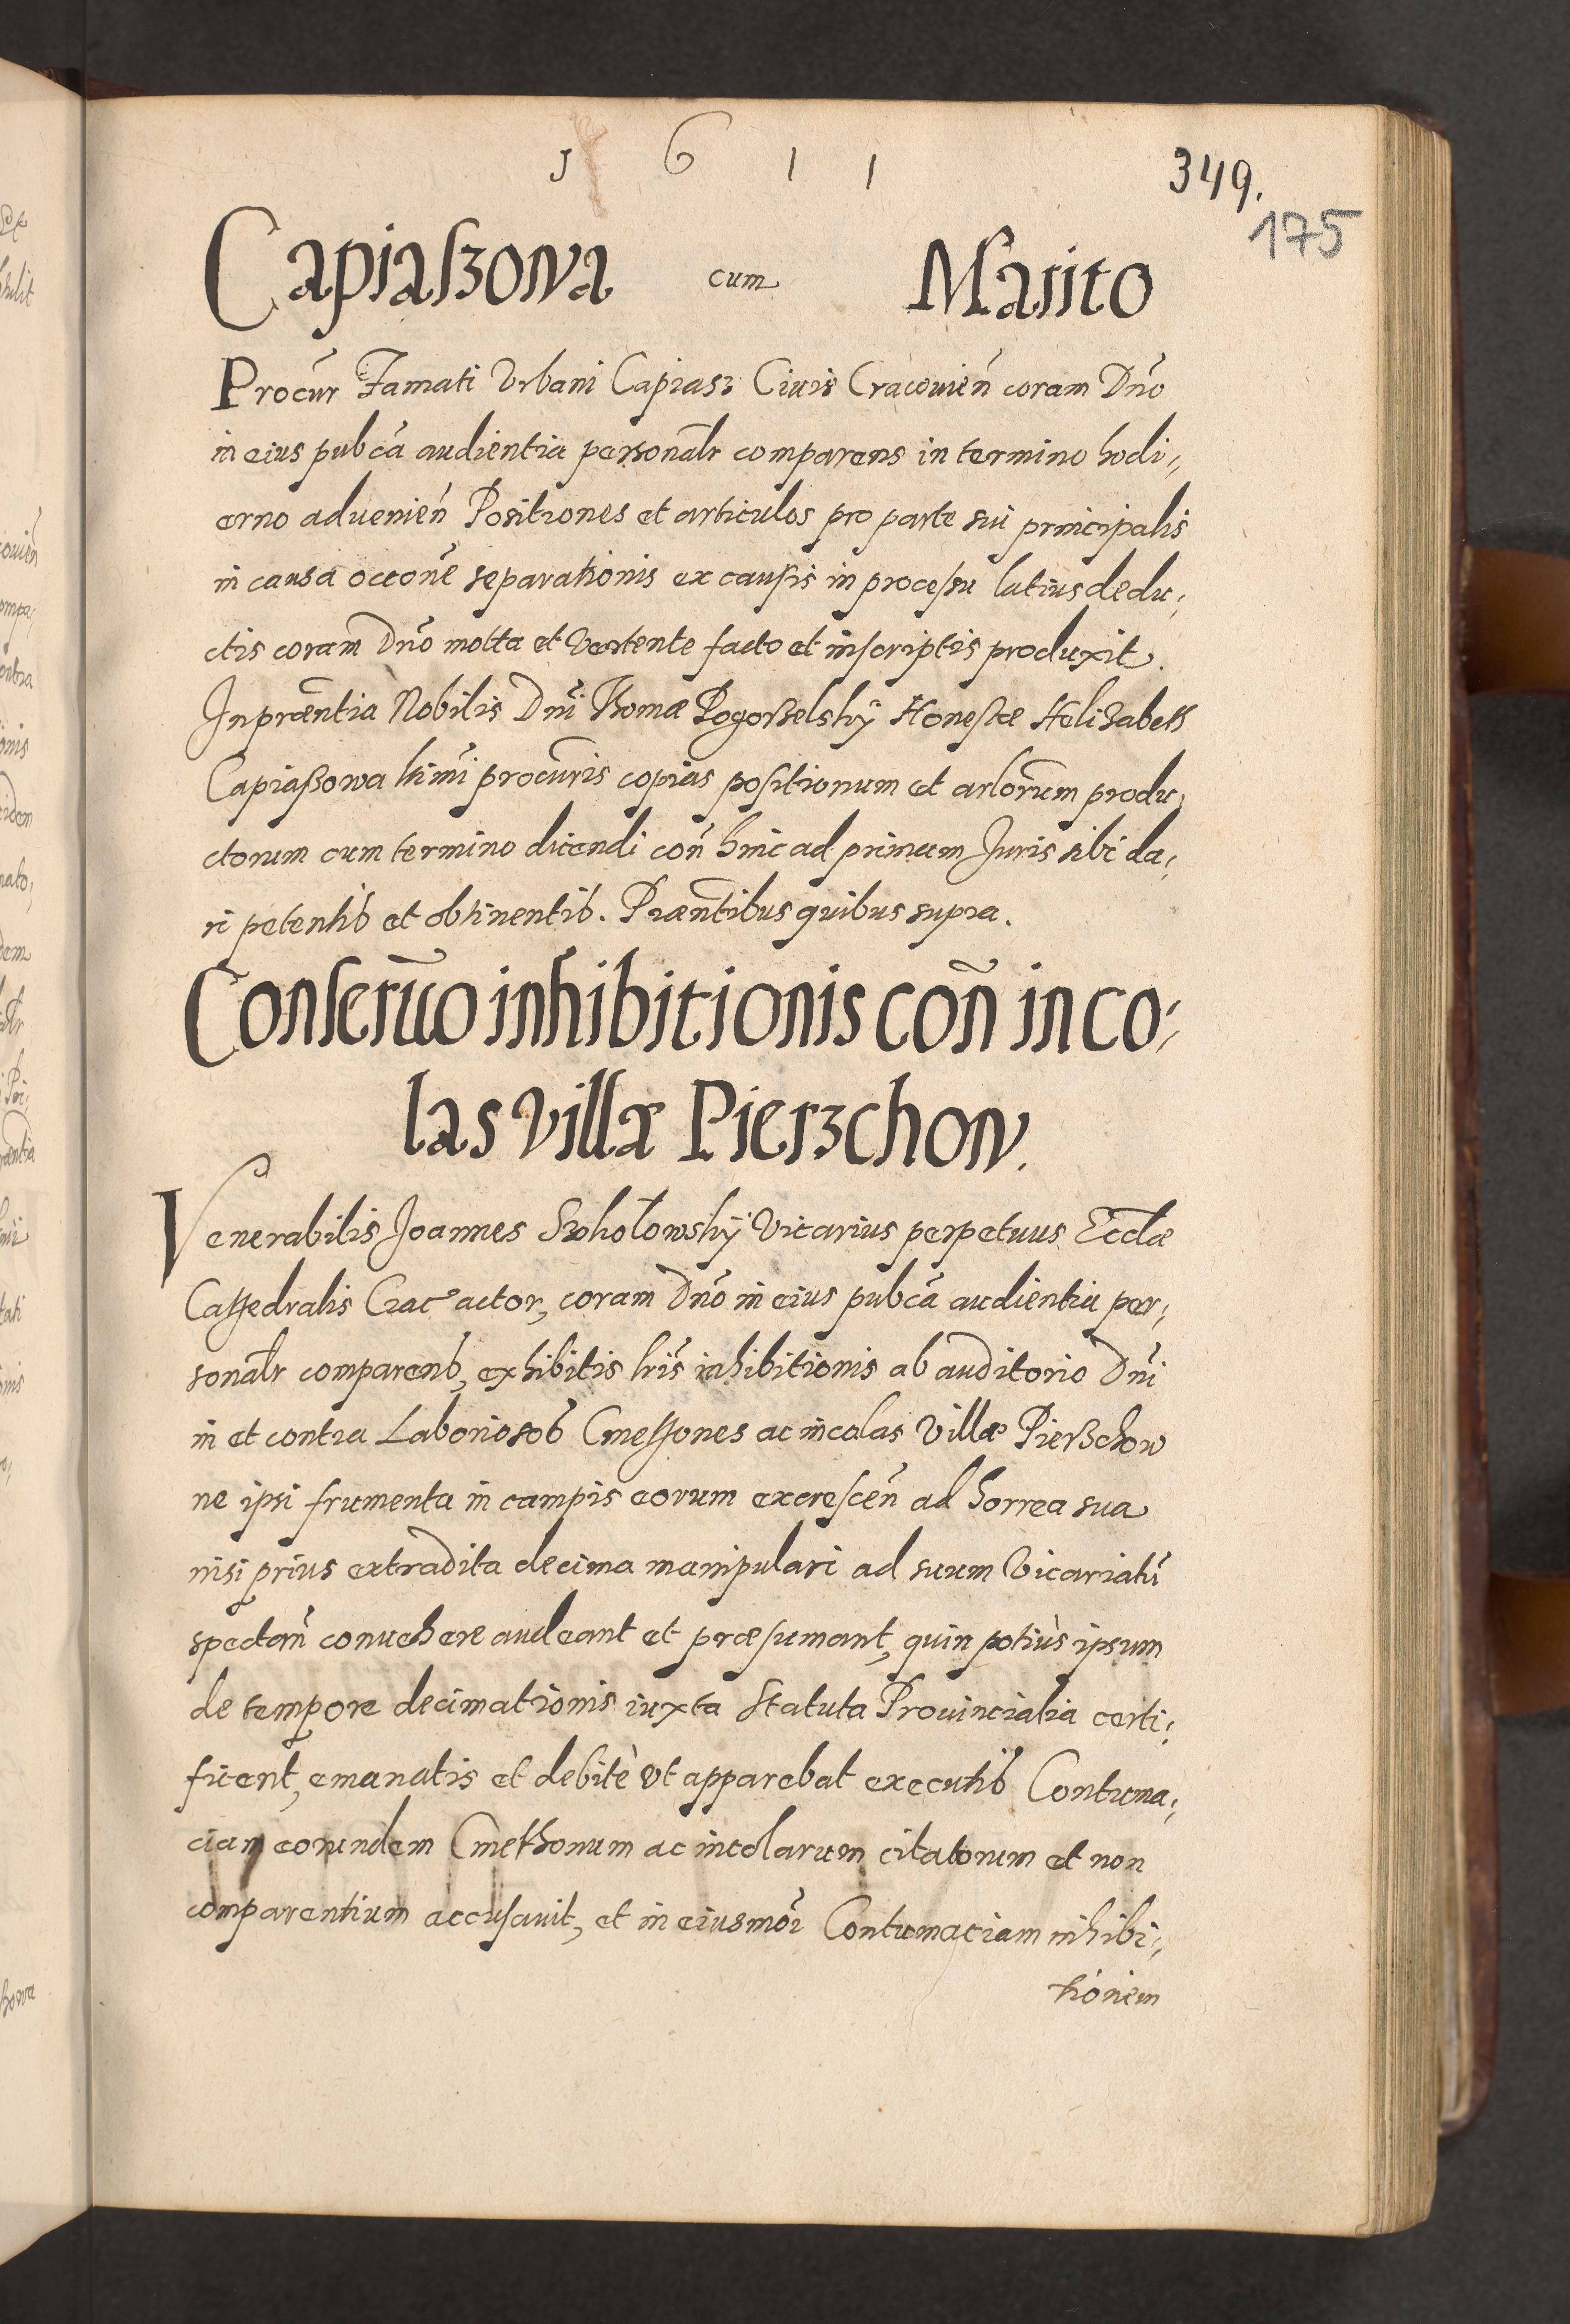 1 6 1 1
349.
175
Capiaſzowa cum Marito
Procur̃ Famati Vrbani Capiasz Ciuis Cracouień coram Dño
in eius pubca᷉ audientia personalr comparens in termino hodi,,
erno aduenień Positiones et articulos pro parte sui principalis
in causa occone᷉ separationis ex causis in proceſsu latius dedu,,
ctis coram Dño motta et Vertente facto et inscriptis produxit.
In prœntia Nobilis Dñi Thomæ Pogorßelskÿ Honeſtæ Helizabeth
Capiaßowa ltimi procuris copias positionum et arlorum produ,,
ctorum cum termino dicendi coñ hinc ad primum Juris sibi da,,
ri petentib et obtinentib. Præntibus quibus supra.
Conseruo inhibitionis coñ inco,,
las Villæ Pierzchow.
Venerabilis Joannes Szokołowskÿ Vicarius perpetuus Ecclæ
Cathedralis Crac actor, coram Dño in eius pubca᷉ audientia per,,
sonalr comparens, exhibitis lris inhibitionis ab auditorio Dñi
in et contra Laboriosos Cmethones ac incolas Villæ Pierßchow
ne ipsi frumenta in campis eorum excreſceñ ad horrea sua
nisi prius extradita decima manipulari ad suum Vicariatũ
spectañ conuehere audeant et præsumant, quin potiùs ipsum
de tempore decimationis iuxta Statuta Prouincialia certi,,
ficent, emanatis et debitè vt apparebat executib Contuma,,
ciam eorundem Cmethonum ac incolarum citatorum et non
comparentium accusauit, et in eiusmoi Contumaciam inhibi,,
tionem